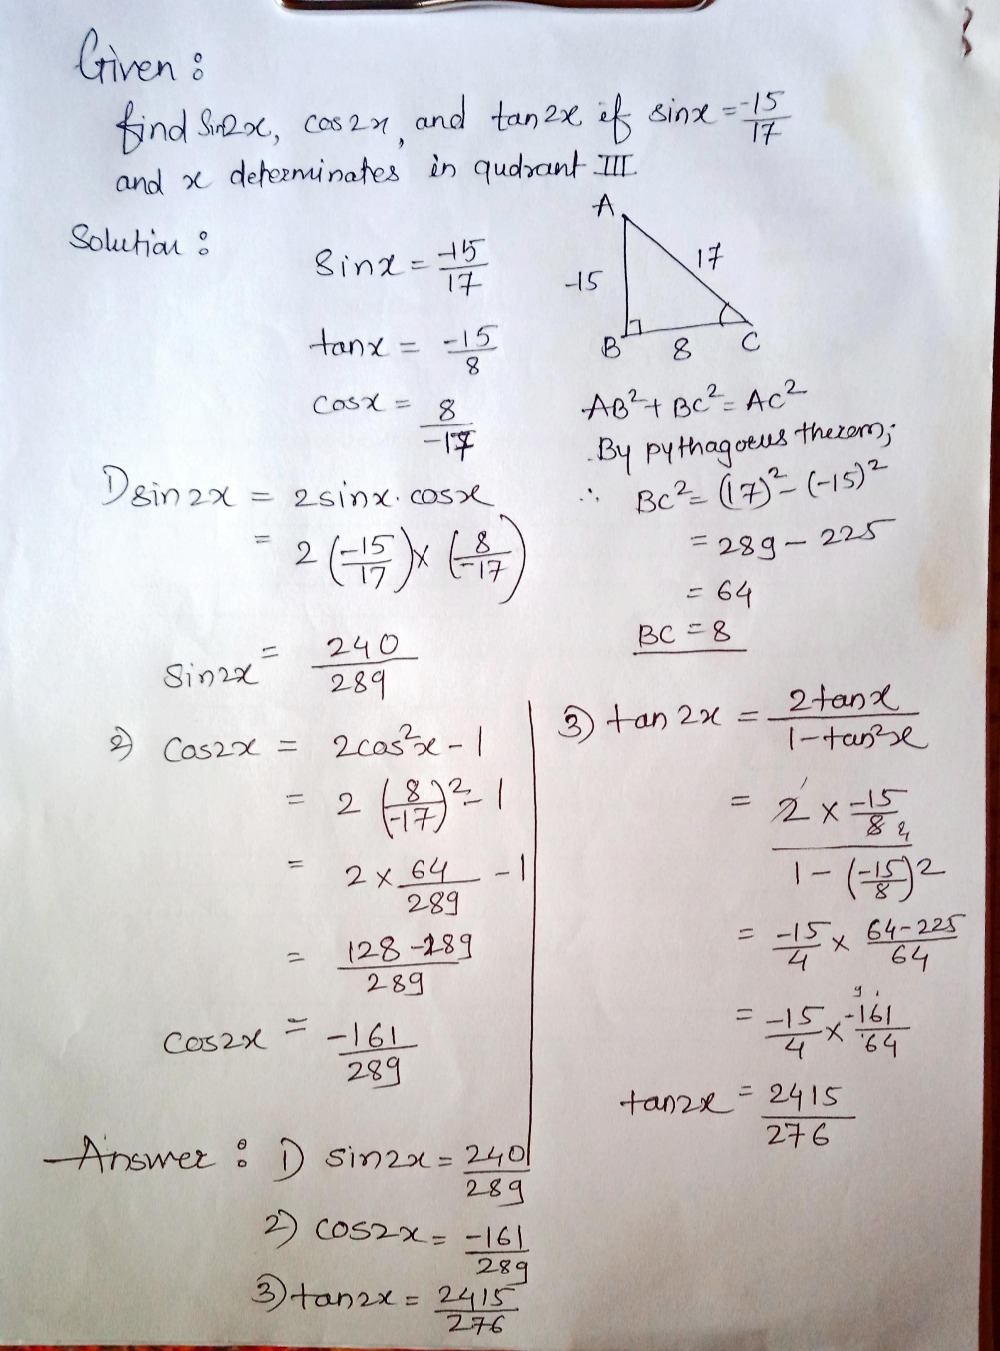 Given :
find Sin2x, cos2x, and tan2x if sinx = -15/17
and x deterzminates in qudrant III
Solution :
Sinx = -15/17
tanx = -15/8
Cosx = 8/-17
A
-15
17
B 8 C
AB² + BC² = AC²
By pythagoreus therem;
∴ BC² = (17)² - (-15)²
= 289 - 225
= 64
BC = 8
1) sin2x = 2sinx. cosx
= 2 (-15/17) x (8/-17)
Sin2x = 240/289
2) Cos2x = 2cos²x - 1
= 2 (8/-17)² - 1
= 2 x 64/289 - 1
= 128-289/289
Cos2x = -161/289
3) tan 2x = 2tanx/1-tan²x
= 2 x -15/8 4 / 1 - (-15/8)²
= -15/4 x 64-225/64
= -15/4 x -161/64
tan2x = 2415/276
Answer : 1) sin2x = 240/289
2) cos2x = -161/289
3) tan2x = 2415/276